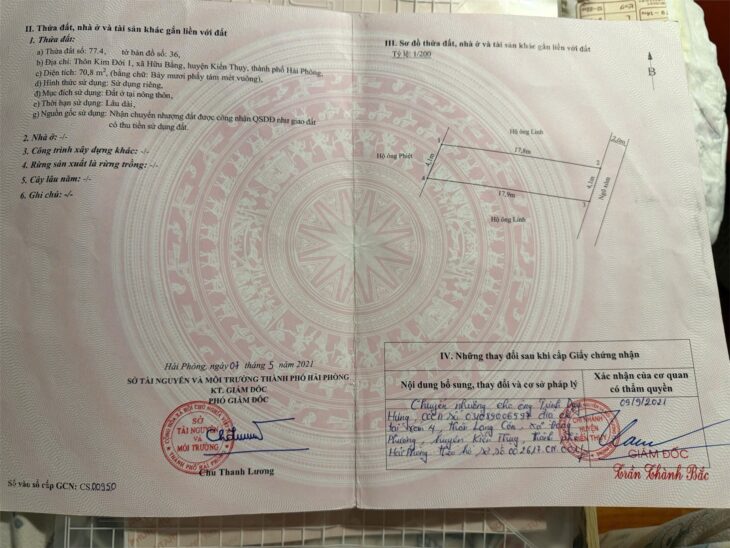 II. Thửa đất, nhà ở và tài sản khác gắn liền với đất
1. Thửa đất:
a) Thửa đất số: 77.4, tờ bản đồ số: 36,
b) Địa chỉ: Thôn Kim Đới 1, xã Hữu Bằng, huyện Kiến Thụy, thành phố Hải Phòng,
c) Diện tích: 70,8 m², (bằng chữ: Bảy mươi phẩy tám mét vuông),
d) Hình thức sử dụng: Sử dụng riêng,
đ) Mục đích sử dụng: Đất ở tại nông thôn,
e) Thời hạn sử dụng: Lâu dài,
g) Nguồn gốc sử dụng: Nhận chuyển nhượng đất được công nhận QSDĐ như giao đất
có thu tiền sử dụng đất.
2. Nhà ở: -/-
3. Công trình xây dựng khác: -/-
4. Rừng sản xuất là rừng trồng: -/-
5. Cây lâu năm: -/-
6. Ghi chú: -/-
Hải Phòng, ngày 07 tháng 5 năm 2021
SỞ TÀI NGUYÊN VÀ MÔI TRƯỜNG THÀNH PHỐ HẢI PHÒNG
KT. GIÁM ĐỐC
PHÓ GIÁM ĐỐC
SỞ
TÀI NGUYÊN
VÀ
MÔI TRƯỜNG
THÀNH PHỐ HẢI PHÒNG
Chu Thanh Lương
Số vào sổ cấp GCN: CS.00950
III. Sơ đồ thửa đất, nhà ở và tài sản khác gắn liền với đất
Tỷ lệ 1/200
B
Hộ ông Linh
2,0m
17,8m
Hộ ông Phiết
4,1m
4,1m
Ngõ xóm
17,9m
Hộ ông Linh
IV. Những thay đổi sau khi cấp Giấy chứng nhận
Nội dung bổ sung, thay đổi và cơ sở pháp lý
Xác nhận của cơ quan
có thẩm quyền
Chuyển nhượng cho ông Trịnh Duy
Hưng, CCCD số địa chỉ
tại Xóm 4,
Phương, huyện Kiến Thụy, thành phố
Hải Phòng theo hồ sơ số
09/9/2021
CHI NHÁNH
HUYỆN
KIẾN THỤY
GIÁM ĐỐC
Trần Thành Bắc